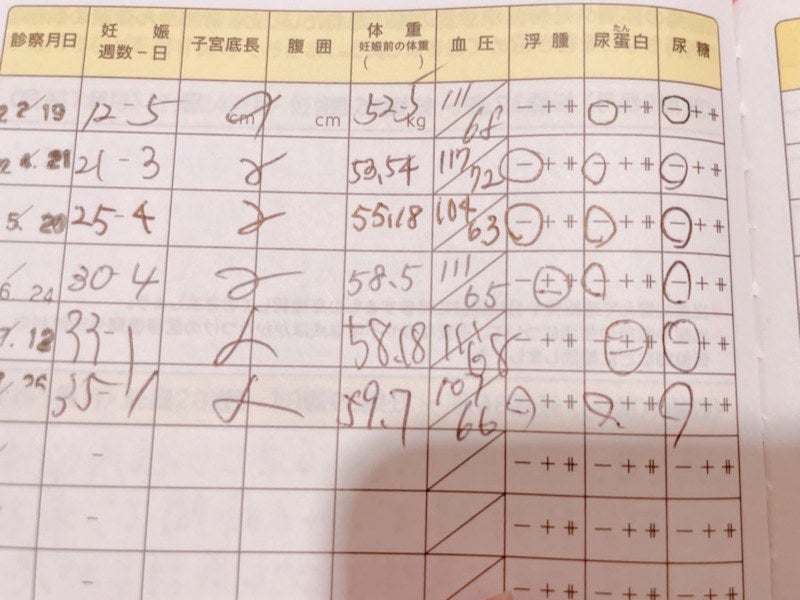 診察月日 妊娠週数-日 子宮底長 腹囲 体重 妊娠前の体重 ( ) 血圧 浮腫 尿蛋白 たん 尿糖
2 2/19 12-5 cm cm 52.5 kg 111/68 - + ++ - + ++ - + ++
2 4. 21 21-3 53.54 117/72 - + ++ - + ++ - + ++
5. 20 25-4 55.18 104/63 - + ++ - + ++ - + ++
6 24 30-4 58.5 111/65 - ± + ++ - + ++ - + ++
7. 12 33-1 58.18 - + ++ - + ++ - + ++
35-1 59.7 107/66 - + ++ - + ++ - + ++
- - + ++ - + ++ - + ++
- - + ++ - + ++ - + ++
- - + ++ - + ++ - + ++